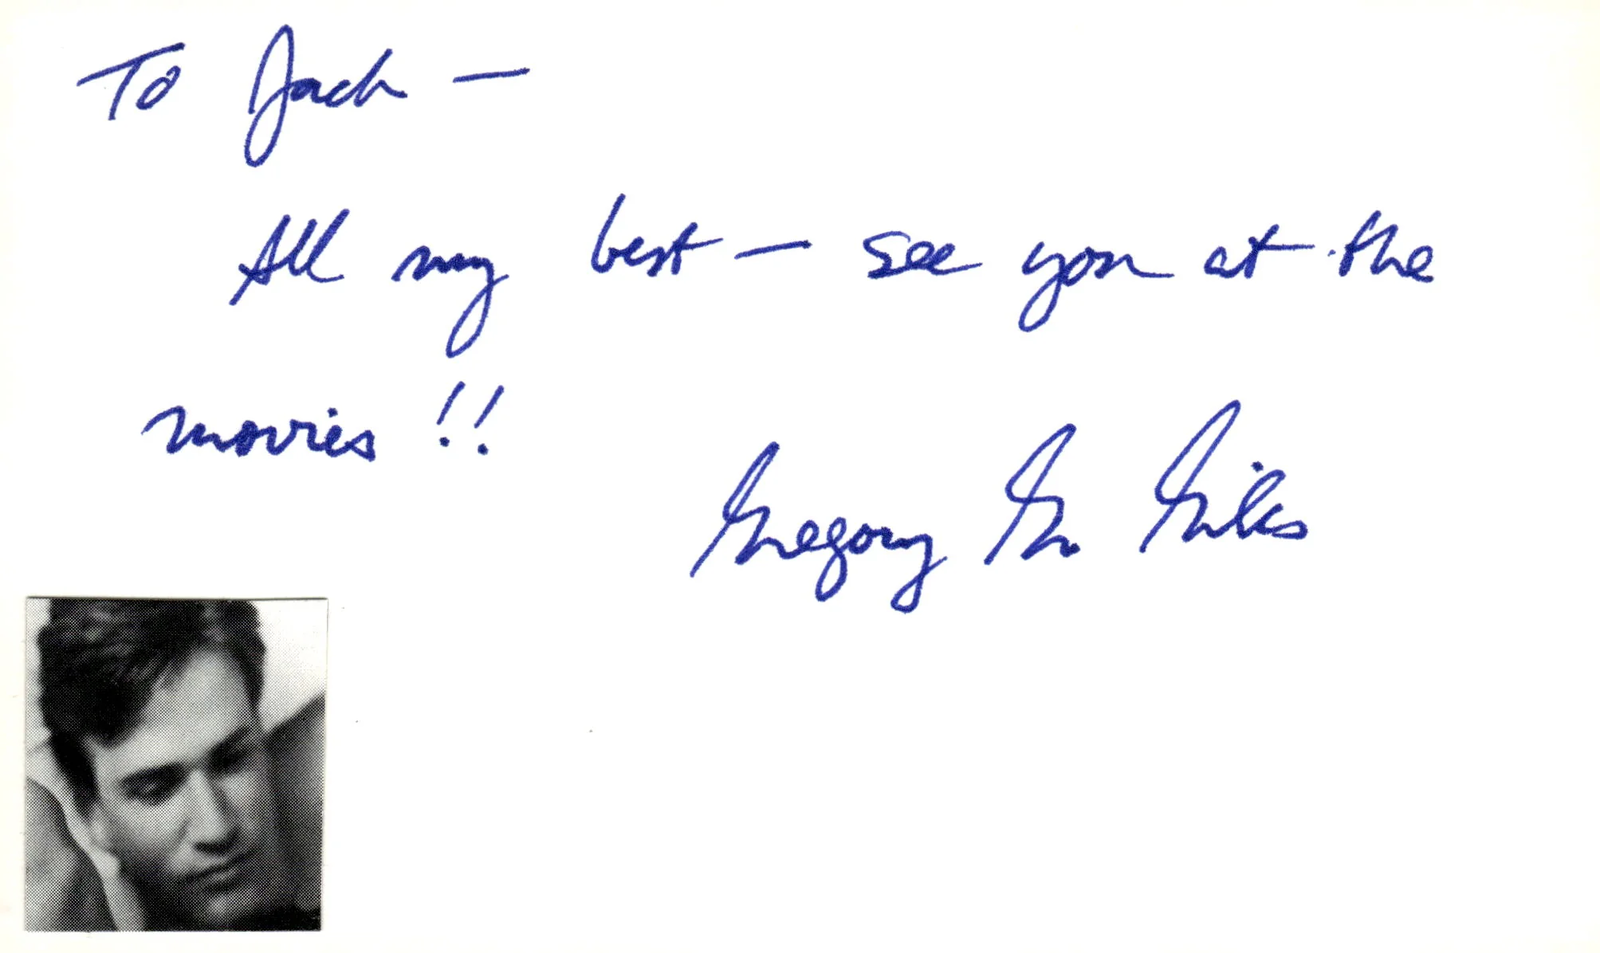 To Jack —
All my best — see you at the
movies !!
Gregory G. Giles